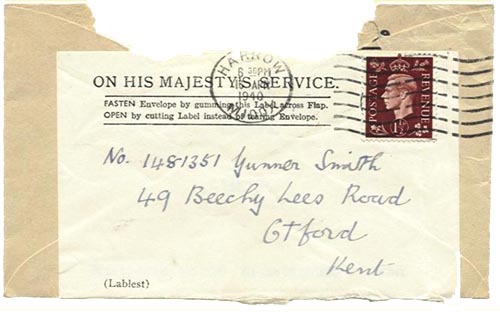 HARROW
6 30PM
15 APR
1940
MIDDX
ON HIS MAJESTY'S SERVICE.
POSTAGE
REVENUE
1½
FASTEN Envelope by gumming this Label across Flap.
OPEN by cutting Label instead of tearing Envelope.
No. 1481351 Gunner Smith
49 Beechy Lees Road
Otford
Kent
(Lablest)